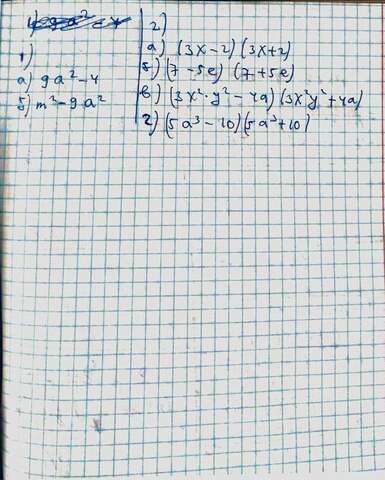 1)
а) 9a²-4
б) m²-9a²
2)
а) (3x-2)(3x+2)
б) (7-5e) (7+5e)
в) (3x²·y²-4a)(3x²y²+4a)
г) (5a³-10)(5a³+10)